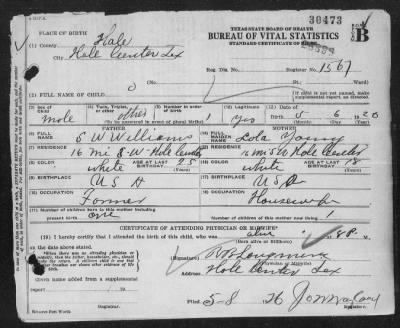 30473
TEXAS STATE BOARD OF HEALTH
BUREAU OF VITAL STATISTICS
STANDARD CERTIFICATE OF BIRTH
B
PLACE OF BIRTH
(1) County Hale
City Hale Center Tex
Reg. Dis. No. Register No. 1567
(No. St. Ward)
(2) FULL NAME OF CHILD
If child is not yet named, make supplemental report, as directed.
(3) Sex of Child male
(4) Twin, Triplet, or other
(5) Number in order of birth
(To be answered only in event of plural births)
(6) Legitimate yes
(12) Date of Birth 5 6 1920
(Month) (Day) (Year)
FATHER
(7) FULL NAME S W Williams
MOTHER
FULL MAIDEN NAME Lola Young
RESIDENCE 16 mi S W Hale Center
RESIDENCE 16 mi S W Hale Center
COLOR white AGE AT LAST BIRTHDAY 25 (Years)
COLOR white AGE AT LAST BIRTHDAY 18 (Years)
BIRTHPLACE USA
BIRTHPLACE USA
OCCUPATION Farmer
OCCUPATION Housewife
(11) Number of children born to this mother including present birth one
Number of children of this mother now living 1
CERTIFICATE OF ATTENDING PHYSICIAN OR MIDWIFE
I hereby certify that I attended the birth of this child, who was alive 8 P. M.
on the date above stated.
(Born alive or Stillborn)
(Signature)
(Physician or Midwife)
Given name added from a supplemental report 19
Address Hale Center Tex
Registrar.
Filed 5-8
Registrar